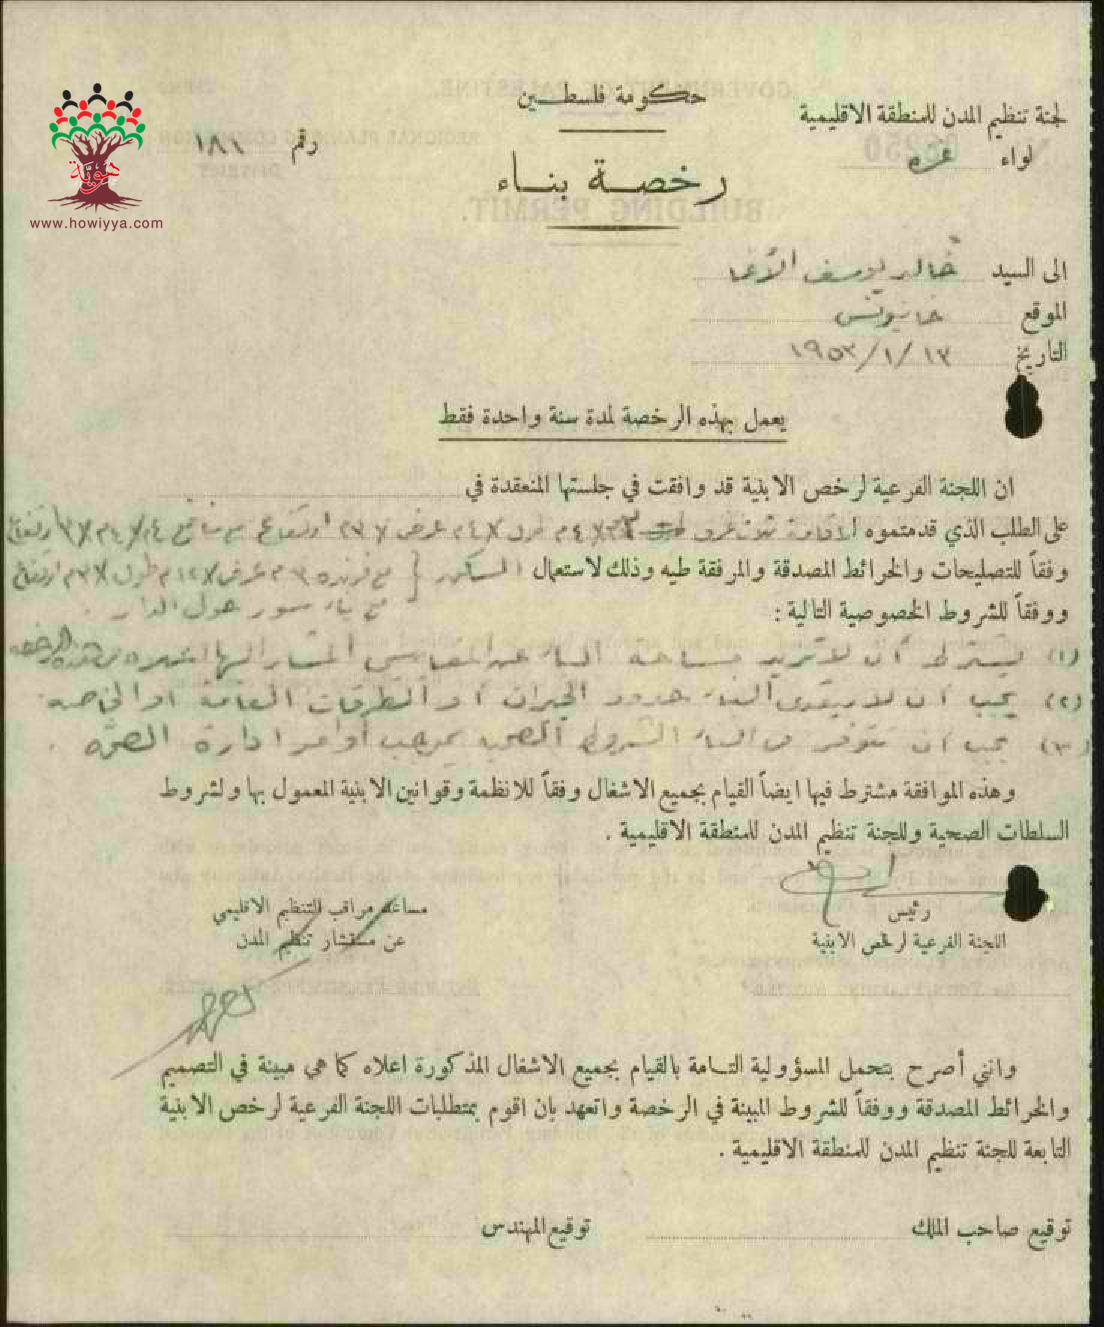 حكومة فلسطين
لجنة تنظيم المدن للمنطقة الاقليمية
لواء غزه
رقم ١٨١
هوية
www.howiyya.com
رخصة بناء
الى السيد خالد يوسف الأغا
الموقع خانيونس
التاريخ ١٣ / ١ / ١٩٥٣
يعمل بهذه الرخصة لمدة سنة واحدة فقط
ان اللجنة الفرعية لرخص الابنية قد وافقت في جلستها المنعقدة في
على الطلب الذي قدمتموه لاقامة ثلاث غرف طول ٤م عرض ٣م ارتفاع
وفقاً للتصليحات والخرائط المصدقة والمرفقة طيه وذلك لاستعمال السكن
مع بناء سور حول الدار .
ووفقاً للشروط الخصوصية التالية :
(١) يشترط أن لا تزيد مساحة البناء عن المقاييس المشار اليها اعلاه من هذه الرخصه
(٢) يجب ان لا يتعدى البناء حدود الجيران أو الطرقات العامة او الخاصه .
(٣) يجب ان تتوفر في البناء الشروط الصحيه بموجب أوامر ادارة الصحه .
وهذه الموافقة مشترط فيها ايضاً القيام بجميع الاشغال وفقاً للانظمة وقوانين الابنية المعمول بها ولشروط
السلطات الصحية وللجنة تنظيم المدن للمنطقة الاقليمية .
رئيس
اللجنة الفرعية لرخص الابنية
مساعد مراقب التنظيم الاقليمي
عن مستشار تنظيم المدن
وانني أصرح بتحمل المسؤولية التامة بالقيام بجميع الاشغال المذكورة اعلاه كما هي مبينة في التصميم
والخرائط المصدقة ووفقاً للشروط المبينة في الرخصة واتعهد بان اقوم بمتطلبات اللجنة الفرعية لرخص الابنية
التابعة للجنة تنظيم المدن للمنطقة الاقليمية .
توقيع صاحب الملك
توقيع المهندس